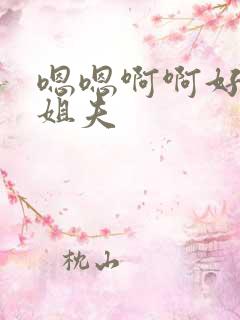 嗯嗯啊啊好
姐夫
枕山